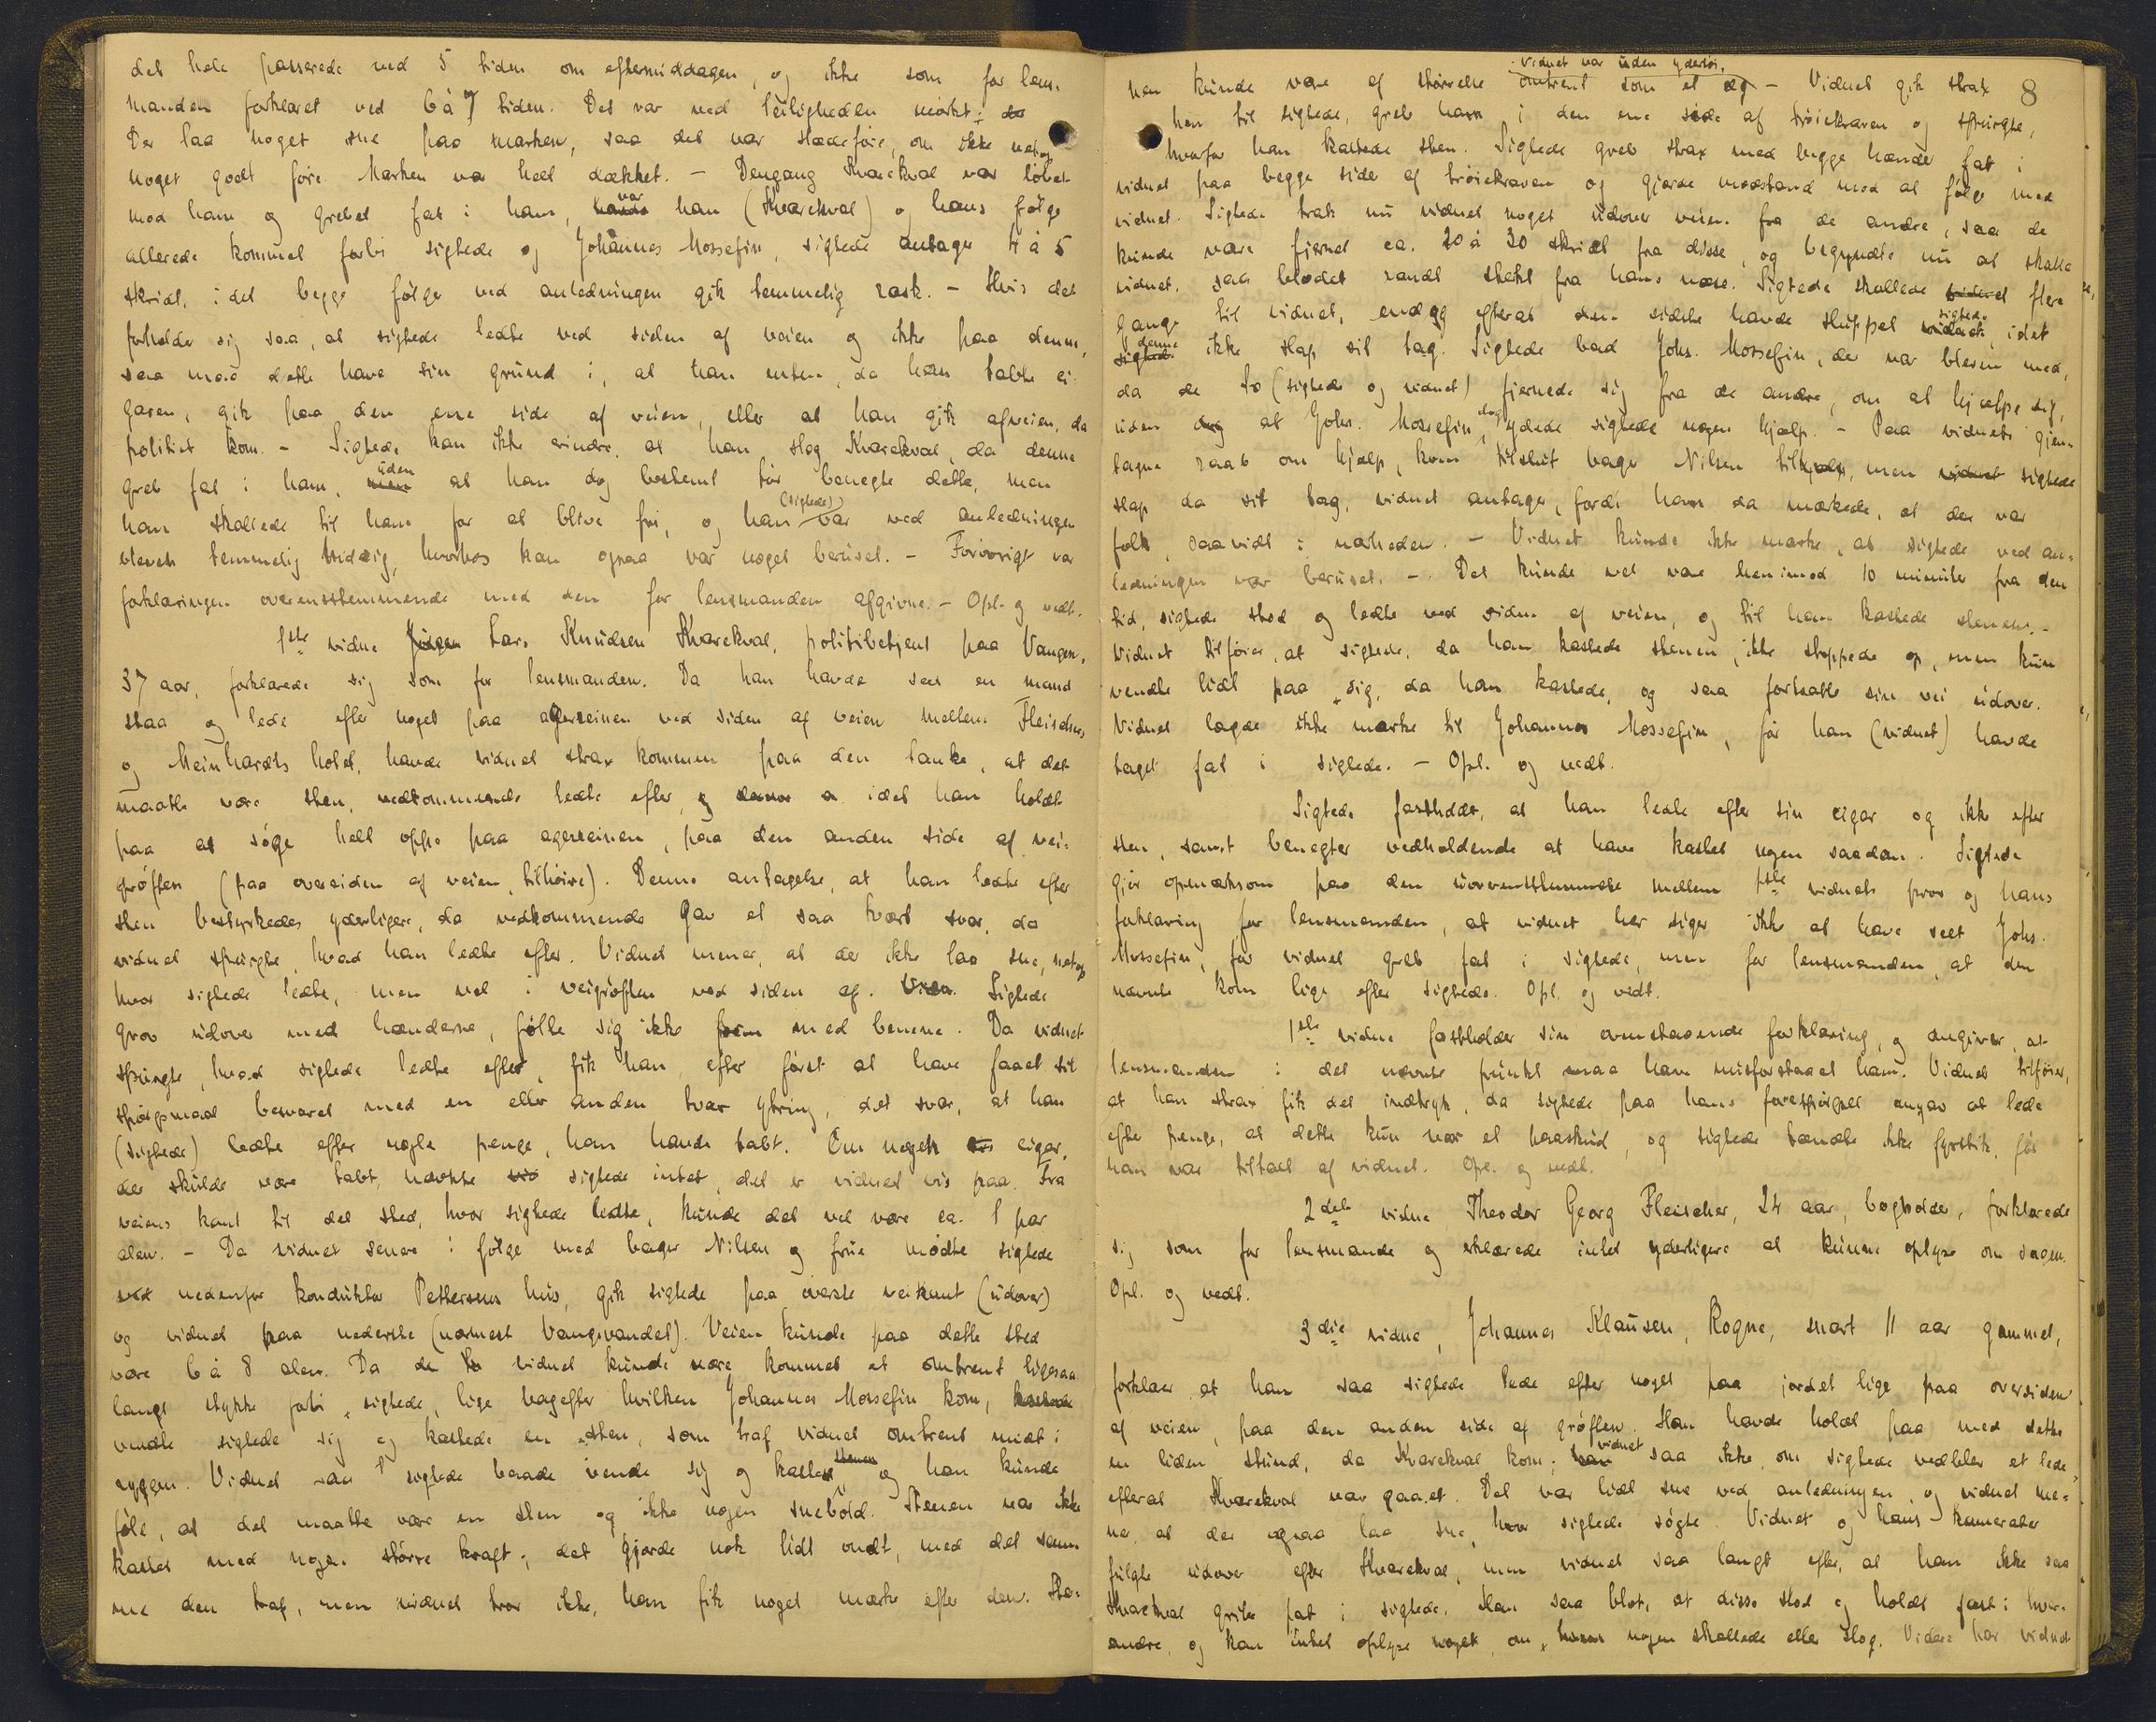 det hele passerede ved 5 tiden om eftermiddagen, og ikke som for lens-
manden forklaret ved 6 à 7 tiden. Det var ved leiligheden mørkt; da
Der laa noget sne paa marken, saa det var slædeføre, om ikke netop
noget godt føre. Marken var helt dækket. - Dengang Kvarekval var løbet
mod ham og grebet fat i ham, havde var han (Kvarekval) og hans følge
allerede kommet forbi sigtede og Johannes Mossefin, sigtede antager 4 à 5
skridt, idet begge følger ved anledningen gik temmelig rask. - Hvis det
forholder sig saa, at sigtede ledte ved siden af veien og ikke paa denne,
saa maa dette have sin grund i, at han enten, da han tabte ci-
garen, gik paa den ene side af veien, eller at han gik afveien, da
politiet kom. - Sigtede kan ikke erindre, at han slog Kvarekval, da denne
greb fat i ham, men uden at han dog bestemt tør benegte dette, men
han skallede til ham for at blive fri, og han (sigtede) var ved anledningen
blevet temmelig hidsig, hvorhos han ogsaa var noget beruset. - Forøvrigt var
forklaringen overensstemmende med den for lensmanden afgivne. - Opl. og vedt.
1ste vidne Lars Knudsen Kvarekval, politibetjent paa Vangen,
37 aar, forklarede sig som for lensmanden. Da han havde seet en mand
staa og lede efter noget paa agerreinen ved siden af veien mellem Fleischers
og Meinhardts hotel, havde vidnet strax kommen paa den tanke, at det
maatte være sten, vedkommende ledte efter, idet han holdt
paa at søge helt oppe paa agerreinen, paa den anden side af vei-
grøften (paa oversiden af veien tilhøire). Denne antagelse, at han ledte efter
sten bestyrkedes yderligere, da vedkommende gav et saa tvært svar, da
vidnet spurgte, hvad han ledte efter. Vidnet mener, at der ikke laa sne, netop
hvor sigtede ledte, men vel i veigrøften ved siden af. Sigtede
grov udover med hænderne, følte sig ikke frem med benene. Da vidnet
spurgte, hvad sigtede ledte efter, fik han, efter først at have faaet sit
spørgsmaal besvaret med en eller anden tvær ytring, det svar, at han
(sigtede) ledte efter nogle penge, han havde tabt. Om nogen cigar,
der skulde være tabt, nævnte sigtede intet, det er vidnet vis paa. Fra
veiens kant til det sted, hvor sigtede ledte, kunde det vel være ca. 1 par
alen. - Da vidnet senere i følge med bager Nilsen og frue mødte sigtede
nedenfor konduktør Pettersens hus, gik sigtede paa øverste veikant (udover)
og vidnet paa nederste (nærmest Vangsvandet). Veien kunde paa dette sted
være 6 à 8 alen. Da de vidnet kunde være kommet et omtrent ligesaa
langt stykke forbi sigtede, lige bagefter hvilken Johannes Mossefin kom, kastede
vendte sigtede sig og kastede en sten, som traf vidnet omtrent midt i
ryggen. Vidnet saa sigtede baade vende sig og kaste stenen og han kunde
føle, at det maatte være en sten og ikke nogen snebold. Stenen var ikke
kastet med nogen større kraft; det gjorde nok lidt ondt, med det sam-
me den traf, men vidnet tror ikke, han fik noget mærke efter den. Ste-
8
Vidnet var uden ydertøi.
nen kunde være af størrelse omtrent som et æg - Vidnet gik strax
hen til sigtede, greb ham i den ene side af trøiekraven og spurgte,
hvorfor han kastede sten. Sigtede greb strax med begge hænder fat i
vidnet paa begge sider af trøiekraven og gjorde modstand mod at følge med
vidnet. Sigtede trak nu vidnet noget udover veien fra de andre, saa de
kunde være fjernet ca. 20 à 30 skridt fra disse, og begyndte nu at skalle
vidnet, saa blodet randt sterkt fra hans næse. Sigtede skallede vidnet flere
gange til vidnet, endog efterat den sidste havde sluppet vidnet sigtede, idet
sigtede denne ikke slap sit tag. Sigtede bad Johs. Mossefin, der var bleven med,
da de to (sigtede og vidnet) fjernede sig fra de andre, om at hjælpe sig,
uden dog at Johs. Mossefin dog ydede sigtede nogen hjælp. - Paa vidnets gjen-
tagne raab om hjælp, kom tilslut bager Nilsen tilhjælp, men vidnet sigtede
slap da sit tag, vidnet antager, fordi han da mærkede, at der var
folk, saavidt i nærheden. - Vidnet kunde ikke mærke, at sigtede ved an-
ledningen var beruset. - Det kunde vel være henimod 10 minuter fra den
tid, sigtede stod og ledte ved siden af veien, og til han kastede stenen. -
Vidnet tilføier, at sigtede, da han kastede stenen, ikke stoppede op, men kun
vendte lidt paa sig, da han kastede, og saa fortsatte sin vei udover.
Vidnet lagde ikke mærke til Johannes Mossefin, før han (vidnet) havde
taget fat i sigtede. - Opl. og vedt.
Sigtede fastholdt, at han ledte efter sin cigar og ikke efter
sten, samt benegter vedholdende at have kastet nogen saadan. Sigtede
gjør opmærksom paa den uoverensstemmelse mellem 1ste vidnets prov og hans
forklaring for lensmanden, at vidnet her siger ikke at have seet Johs.
Mossefin, før vidnet greb fat i sigtede, men for lensmanden, at den
nævnte kom lige efter sigtede. Opl. og vedt.
1ste vidne fastholder sin ovenstaaende forklaring, og angiver, at
lensmanden i det nævnte punkt maa have misforstaaet ham. Vidnet tilføier,
at han strax fik det indtryk, da sigtede paa hans forespørgsel angav at lede
efter penge, at dette kun var et paaskud, og sigtede tændte ikke fyrstik, før
han var tiltalt af vidnet. Opl. og vedt.
2det vidne Theodor Georg Fleischer, 24 aar, bogholder, forklarede
sig som for lensmanden og erklærede intet yderligere at kunne oplyse om sagen.
Opl. og vedt.
3die vidne, Johannes Klausen, Rogne, snart 11 aar gammel,
forklarer, at han saa sigtede lede efter noget paa jordet lige paa oversiden
af veien, paa den anden side af grøften. Han havde holdt paa med dette
en liden stund, da Kvarekval kom; han vidnet saa ikke, om sigtede vedblev at lede,
efterat Kvarekval var gaaet. Det var lidt sne ved anledningen, og vidnet me-
ner, at der ogsaa laa sne, hvor sigtede søgte. Vidnet og hans kamerater
fulgte udover efter Kvarekval, men vidnet saa langt efter, at han ikke saa
Kvarekval gribe fat i sigtede. Han saa blot, at disse stod og holdt fast i hver-
andre, og kan intet oplyse noget, om nogen skallede eller slog. Videre har vidnet